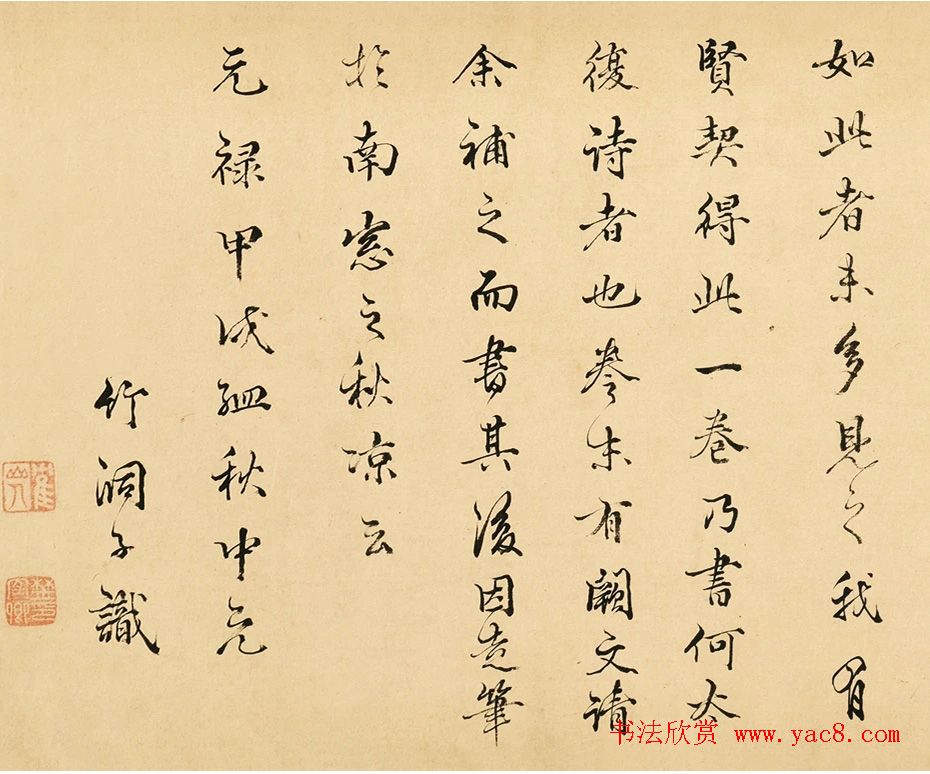 如此者未多見之我有
賢契得此一卷乃書何大
復詩者也卷末有闕文請
余補之而書其後因走筆
於南窓之秋凉云
元禄甲戌孟秋中元
竹洞子識
书法欣赏 www.yac8.com